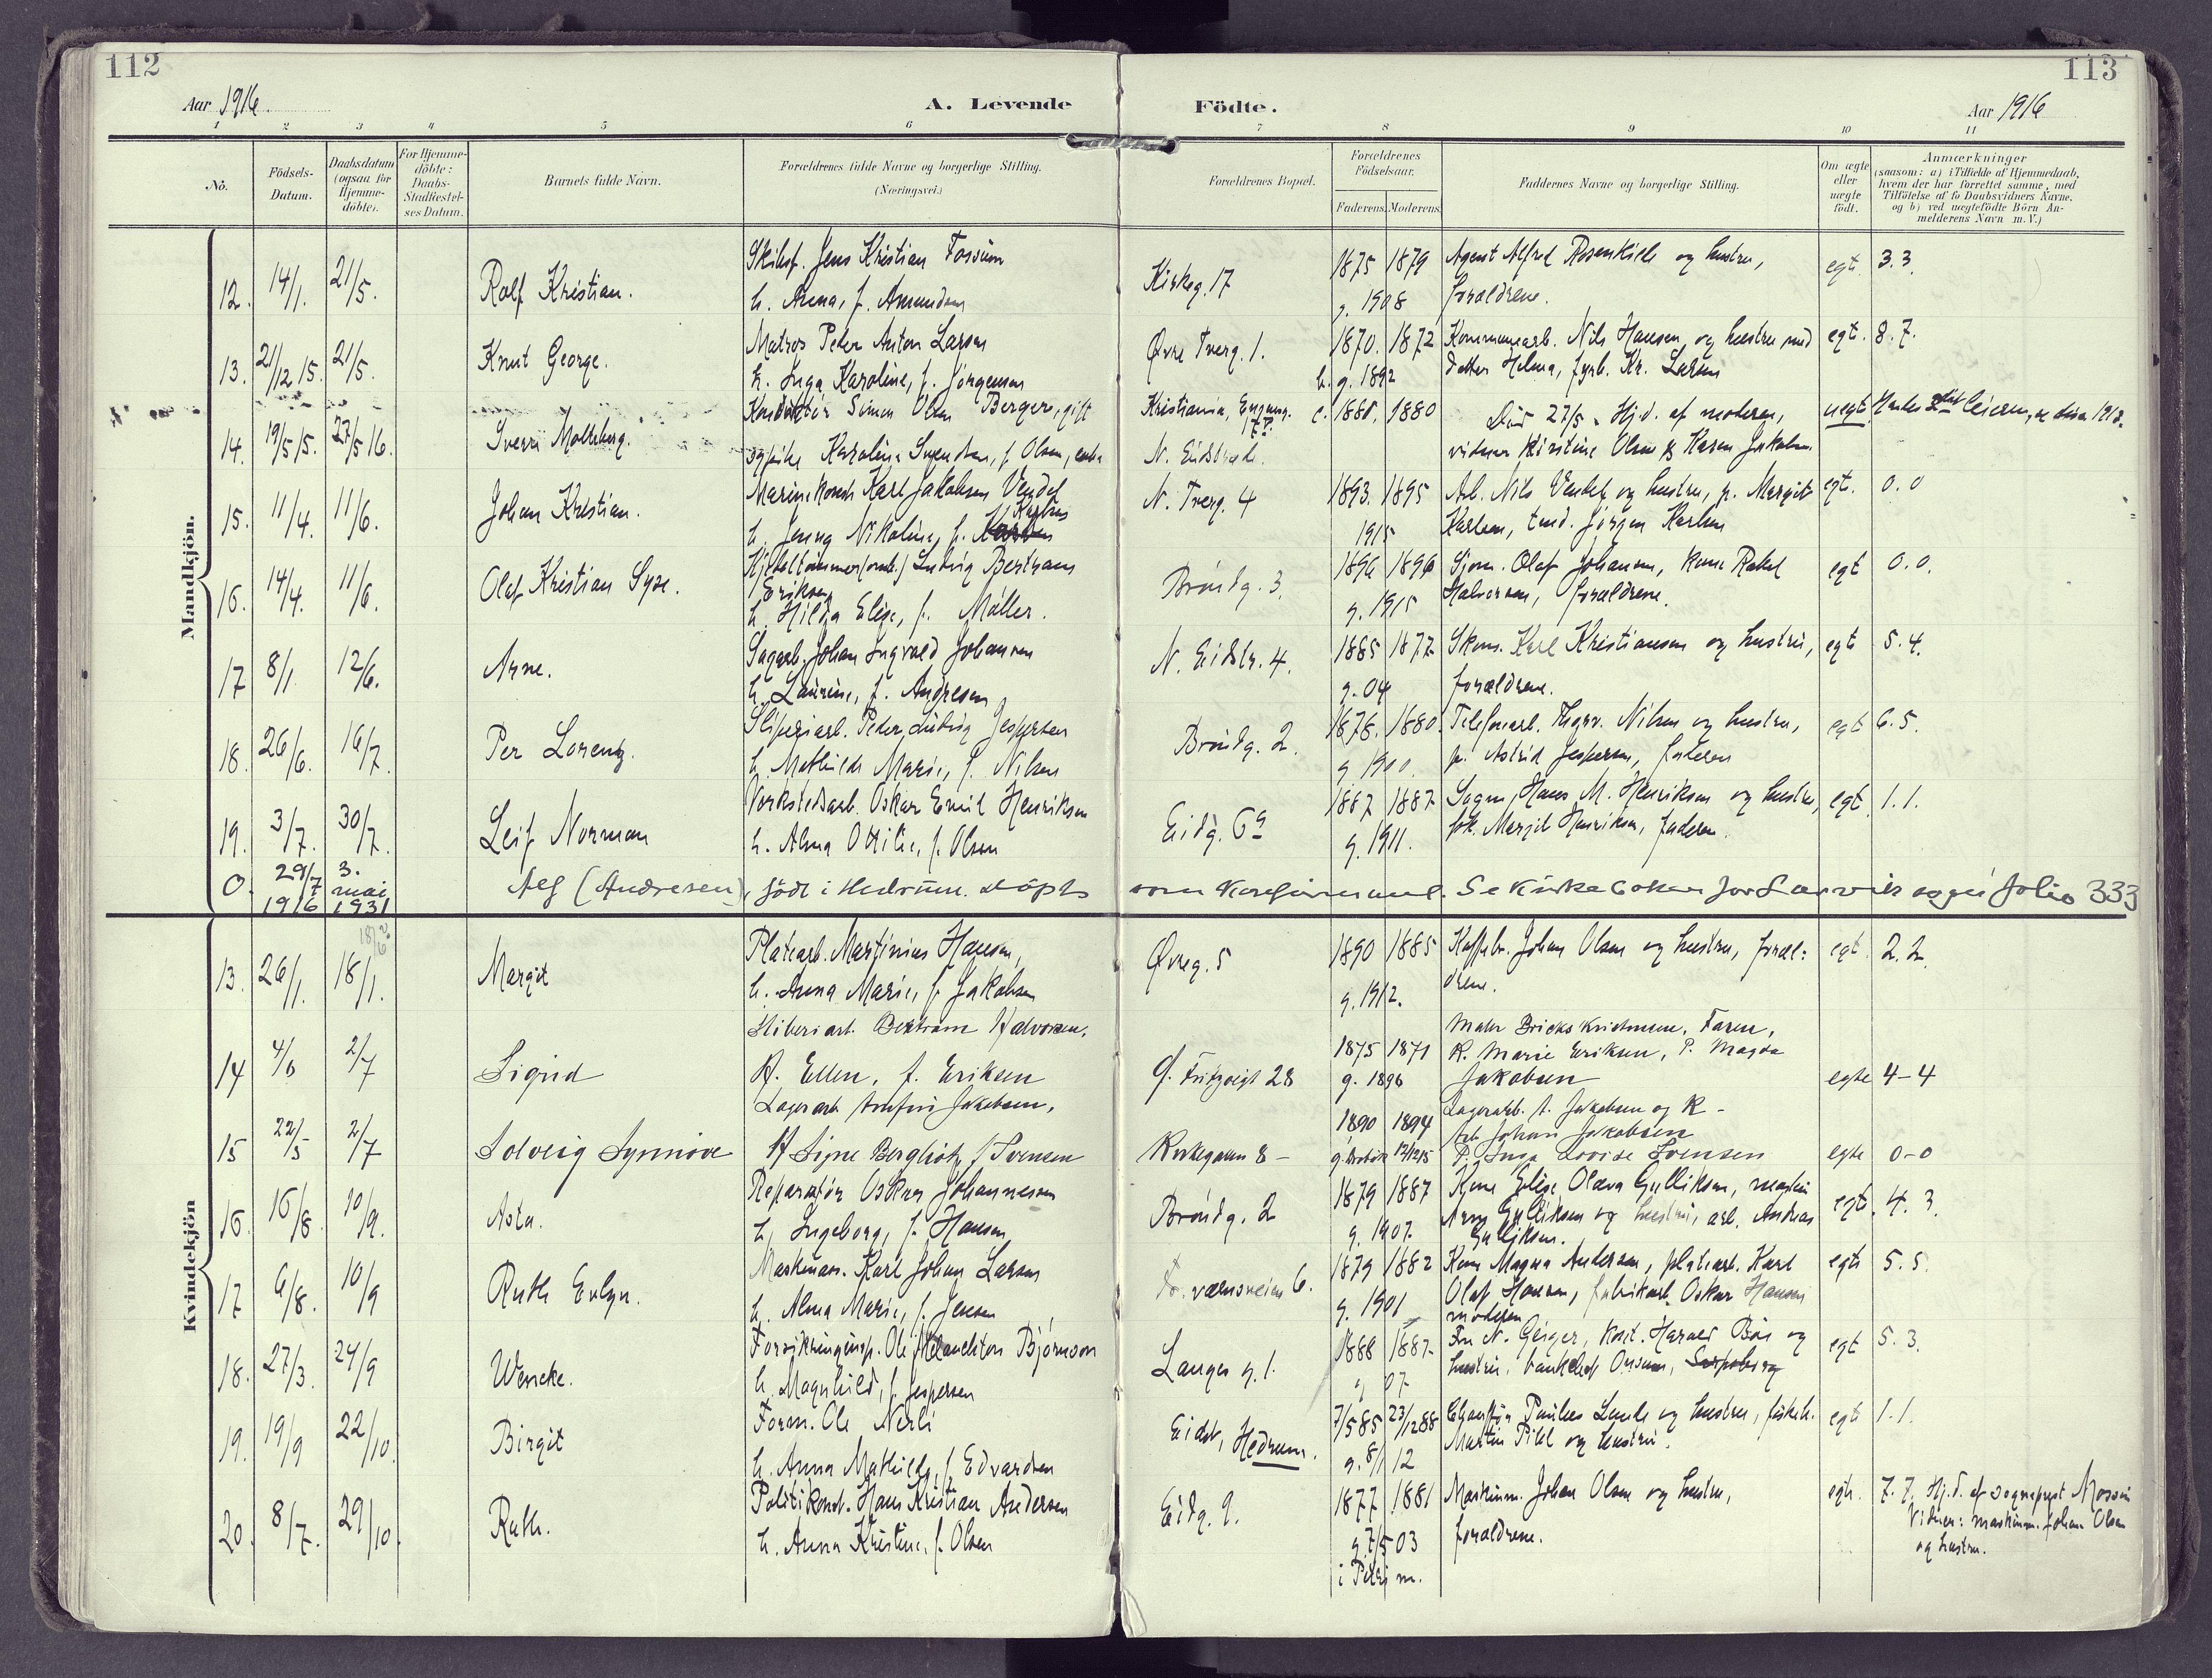 112
113
Aar 1916.
A. Levende Födte.
Aar 1916
1 2 3 4 5 6 7 8 9 10 11
No.
Födsels-Datum.
Daabsdatum (ogsaa for Hjemme-döbte).
For Hjemme-döbte: Daabs-Stadfæstel-ses Datum.
Barnets fulde Navn.
Forældrenes fulde Navne og borgerlige Stilling. (Næringsvei.)
Forældrenes Bopæl.
Forældrenes Födselsaar.
Faderens. Moderens.
Faddernes Navne og borgerlige Stilling.
Om ægte eller uægte født.
Anmærkninger
(saasom: a) i Tilfælde af Hjemmedaab, hvem der har forrettet samme, med Tilföielse af to Daabsvidners Navne. og b) ved uægtefödte Börn An-melderens Navn m. V.)
Mandkjön.
12. 14/1. 21/5. Rolf Kristian. Jens Kristian Fossum Kirkeg. 17 1875 1879 Agent Alfred Rosenkilde og hustru, egt. 3.3.
h. Anna, f. Amundsen g. 1908 forældrene.
13. 21/12 15. 21/5. Knut George. Matros Peder Anton Larsen Øvre Tverg. 1. 1870. 1872 Kommunearb. Nils Hansen og hustru med egt. 8.7.
h. Inga Karoline, f. Jörgensen g. 1892 datter Helma, fyrb. Kr. Larsen
14. 19/5 15. 27/5 16. Sverre Konduktör Simen Olsen Berger, gift Kristiania, 1880 Död 27/5. Hj.d. af moderen, uegt.
Karoline f. Olsen, enke N. Eidstræde. vidner Kirstine Olsen & Karen Jakobsen.
15. 11/4. 11/6. Johan Kristian. Karl Jakobsen N. Tverg. 4 1893. 1895 Arb. Nils og hustru, p. Margit egt. 0.0
h. Jenny Nikoline, f. 1915 Karlsen, tmd. Jörgen Karlsen
16. 14/4. 11/6. Olaf Kristian Syse. Ludvig Bertrans Bröndg. 3. 1896 1896 Sjöm. Olaf Johansen, kone Rakel egt 0.0.
Eriksen
h. Hilda Elise, f. Möller. g. 1915 Halvorsen, forældrene.
17 8/1 12/6. Arne. Sagarb. Johan Ingvald Johansen N. Eidstr. 4. 1885 1877 Skom. Karl Kristiansen og hustru, egt 5.4.
h. Laurine, f. Andresen g. 04 forældrene.
18. 26/6. 16/7. Per Lorentz. Sliperiarb. Peder Ludvig Jespersen Bröndg. 2. 1878. 1880. Telefonarb. Thorv. Nilsen og hustru, egt 6.5.
h. Mathilde Marie, f. Nilsen g. 1900. p. Astrid Jespersen, faderen
19. 3/7. 30/7. Leif Norman Verkstedsarb. Oskar Emil Henriksen Eidg. 6a 1887 1887 Hans M. Henriksen og hustru, egt. 1.1.
h. Alma Ottilie, f. Olsen g. 1911. frk. Margit Henriksen, faderen.
0. 29/7 1916 3. mai 1931 Alf (Andresen), födt i Hedrum. döpt som konfirmand. Se kirkeboken for Larvik sogn folio 333
Kvindekjön
13. 26/1. 18/1. Margit Platearb. Martinius Hansen, Øvreg. 5 1890 1885 Johan Olsen og hustru, foræl- egt. 2.2.
h. Anna Marie, f. Jakobsen g. 1912. drene.
14 4/6 2/7 Sigrid Sliberiarb. Bertram Halvorsen. 28 1875 1871 Faren,
H. Ellen, f. Eriksen g. 1896 K. Marie Eriksen, P. Magda Jakobsen egte 4-4
15 22/5 2/7 Solveig Synnöve Lagerarb. Jakobsen, Kirkegaten 8 - 1890 1894 Lagerarb. A. Jakobsen og K -
Arb. Johan Jakobsen
H Signe Bergliot, f Svensen P. Inga Lovise Svensen egte 0-0
16. 16/8 10/9. Asta. Reparatör Oskar Johannesen Bröndg. 2 1879 1887 Kone Elise Olava Gulliksen, egt. 4.3.
h. Ingeborg, f. Hansen g. 1907. Gulliksen og hustru, arb. Andreas Gulliksen.
17 6/8. 10/9 Ruth Evlyn. Karl Johan Larsen 6. 1879 1882 Kone Magna Andersen, platearb. Karl egte 5.5.
h. Alma Marie, f. Jensen g. 1901 Olaf Hansen, fabrikarb. Oskar Hansen
moderen
18. 27/3. 24/9 Wencke. Forsikringsinsp. Ole Melanchton Björnson Langes g. 1. 1888 1887 Fru N. Geiger, Harald Böe og egt 5.3.
h. Magnhild, f. Jespersen g 07 hustru,
19. 19/9 22/10. Birgit Form. Ole Nerli Eidst, Hedrum. 7/5 85 23/12 88 og hustru, egt 1.1.
h. Anna Mathilde, f Edvardsen g. 8/1 12 Martin Pihl og hustru.
20. 8/7. 29/10. Ruth. Politikonst. Hans Kristian Andersen Eidg. 9. 1877 1881 Maskinm. Johan Olsen og hustru, egte. 7.7. Hj.d. af sogneprest
h. Anna Kristine, f. Olsen g. 7/5 03 forældrene. Vidner: maskinm. Johan Olsen
og hustru.